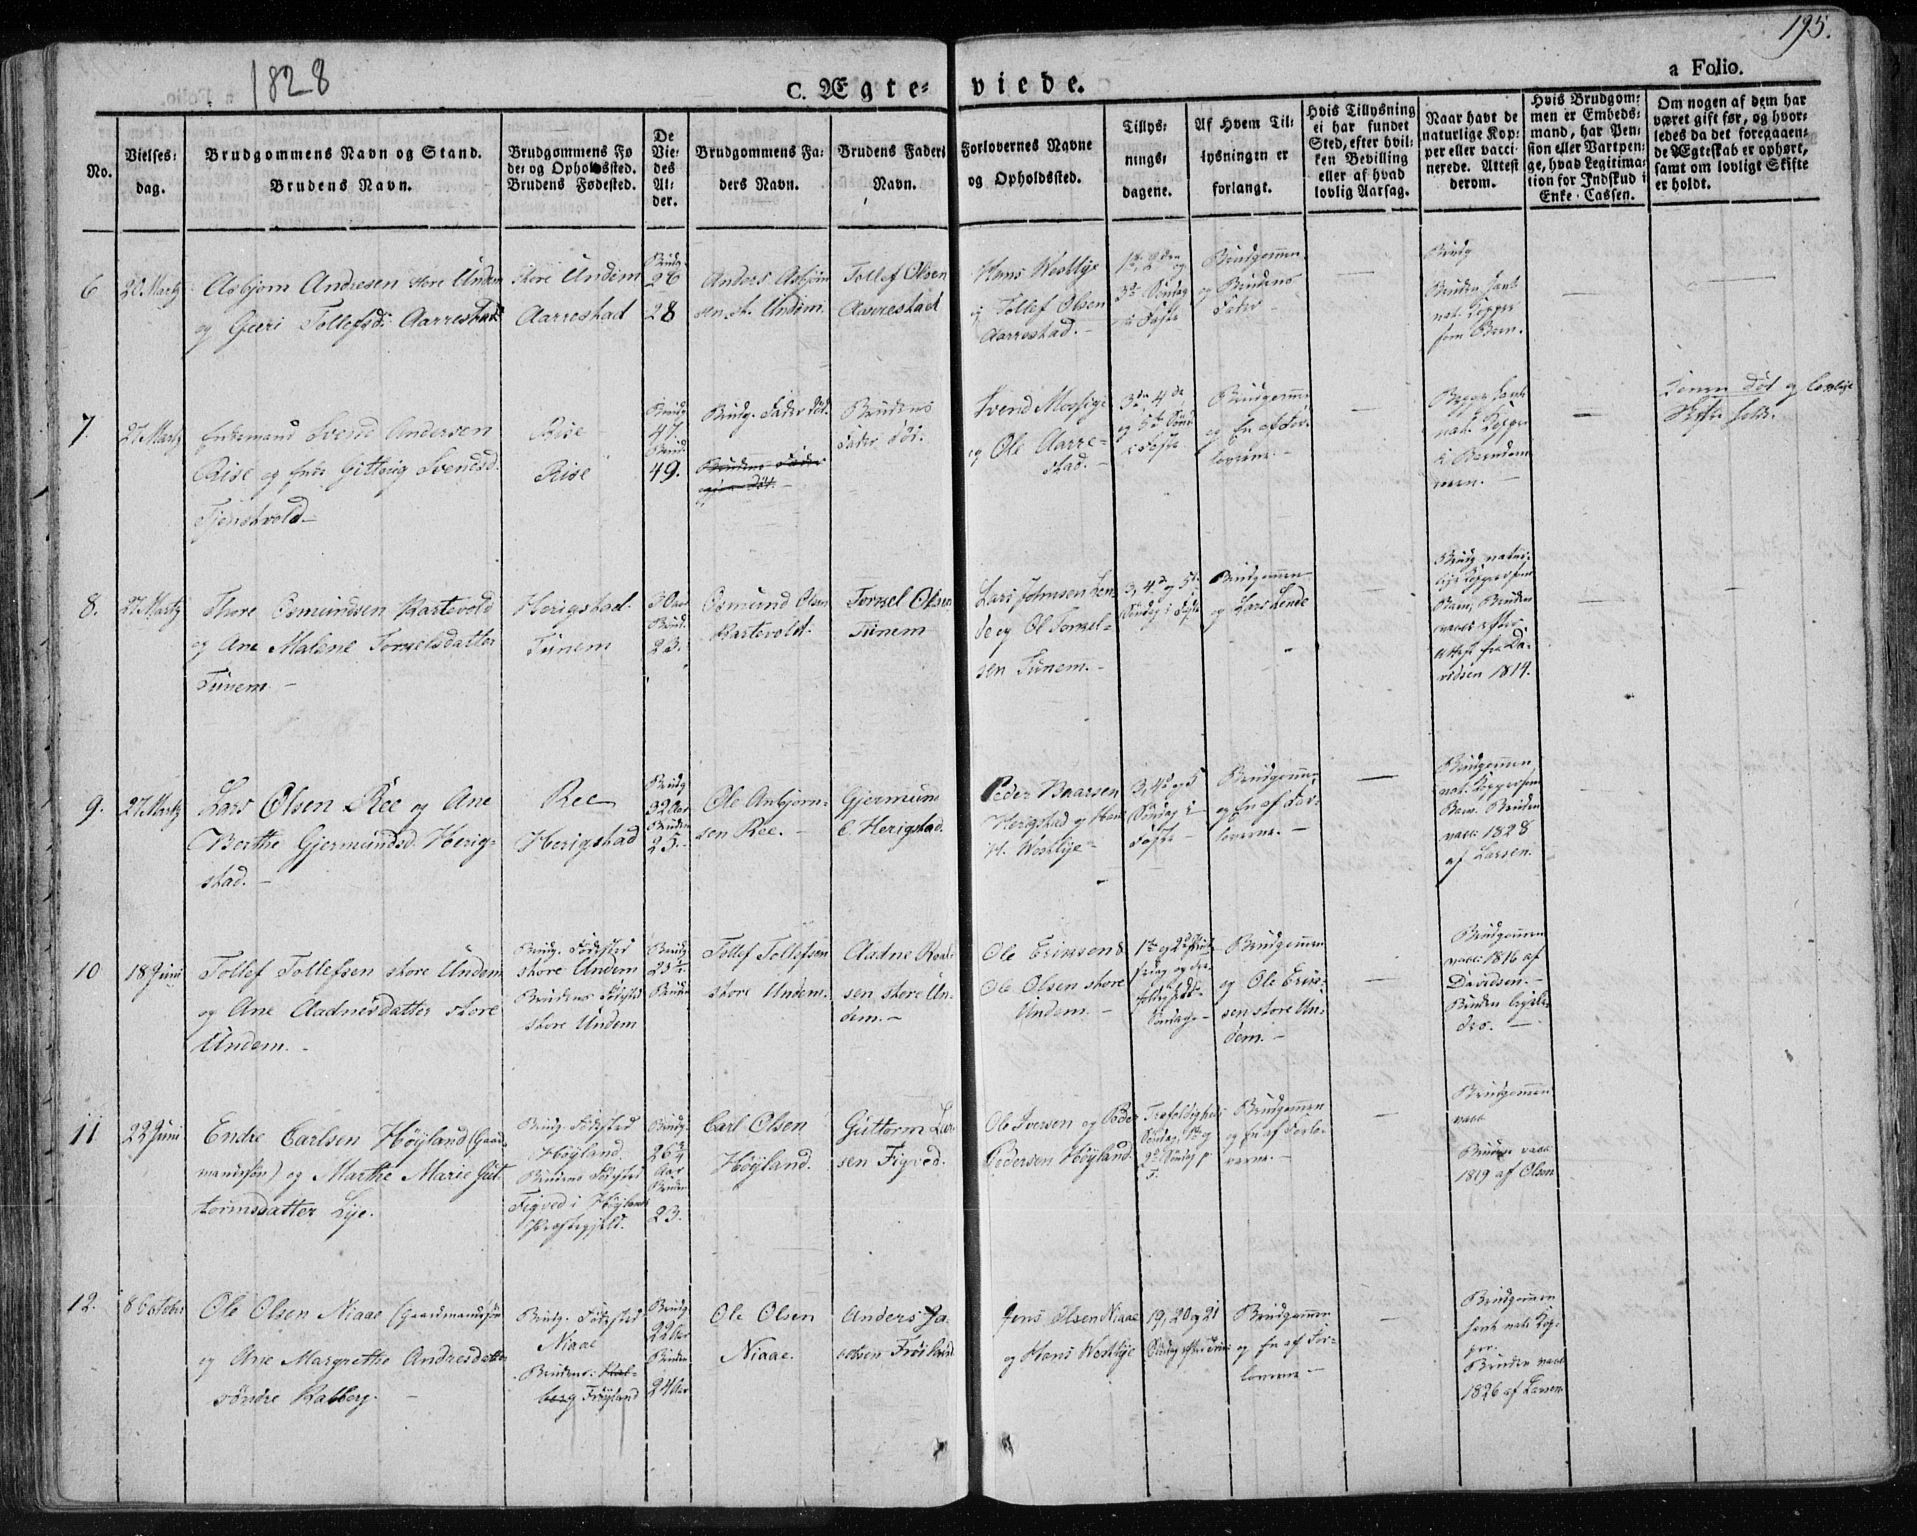 195.
1828
C. Ægte-viede.
a Folio.
No.
Vielses-
dag.
Brudgommens Navn og Stand.
Brudens Navn.
Brudgommens Fø
de- og Opholdssted.
Brudens Fødested.
De
Vie-
des
Al-
der.
Brudgommens Fa-
ders Navn.
Brudens Faders
Navn.
Forlovernes Navne
og Opholdssted.
Tillys-
nings-
dagene.
Af Hvem Til-
lysningen er
forlangt.
Hvis Tillysning
ei har fundet
Sted, efter hvil-
ken Bevilling
eller af hvad
lovlig Aarsag.
Naar havt de
naturlige Kop-
per eller vacci-
nerede. Attest
derom.
Hvis Brudgom-
men er Embeds-
mand, har Pen-
sion eller Vartpen-
ge, hvad Legitima-
tion for Indskud i
Enke-Cassen.
Om nogen af dem har
været gift før, og hvor-
ledes da det foregaaen-
de Ægteskab er ophørt,
samt om lovligt Skifte
er holdt.
6
20 Martz
Asbjørn Andresen store Undem
og Geeri Tollefsd. Aarrestad
store Undem
Aarrestad
Brudg.
26
28
Anders Asbjørn
sen st. Undem.
Tollef Olsen
Aarrestad
Hans Westlye
og Tollef Olsen
Aarrestad.
1ste, 2den og
3de Søndag
i Faste
Brudgommen
og Brudens
Fader
Brudg
Bruden havt
nat. Kopper
som Barn.
7.
27 Martz
Enkemand Svend Andersen
Rise og Enke Gitlaug Svendsd.
Tjenstvold
Rise
Rise
Brudg
47.
Brud.
49.
Brudg. Fader død.
Brudens Fader
død.
Brudens
Fader død.
Svend Mossige
og Ole Aarre-
stad.
3de, 4de
og 5te Sønd
i Faste
Brudgommen
og En af For-
loverne.
Begge havt
nat. Kopper
i Barndom-
men.
død og lovlige
Skifte holdt.
8.
27 Martz
Thore Osmundsen Kartevold
og Ane Malene Torkelsdatter
Tunem
Herigstad
Tunem
30 aar
Brud.
23.
Osmund Olsen
Kartevold.
Torkel Olsen
Tunem
Lars Johnsen Len
de og Ol Torkel-
sen Tunem.
3, 4de og 5te
Søndag i Faste
Brudgommen
og Lars Lende
Brudg. natur-
lige Kopper som
Barn, Bruden
vacc. efter
Attest fra Da-
vidsen 1814.
9.
27 Martz
Lars Olsen Ree og Ane
Berthe Gjermundsd. Herig-
stad.
Ree
Herigstad
Brudg
32 Aar
Bruden
25.
Ole Anbjørn-
sen Ree.
Gjermund
O. Herigstad.
Peder Baarsen
Herigstad og Hans
H. Westlye
3, 4de og 5
Søndag i
Faste
Brudgommen
og En af For-
loverne.
Brudgommen
nat. Kopper som
Barn. Bruden
vacc. 1828
af Larsen.
10
18 Juni
Tollef Tollefsen store Undem
og Ane Aadnesdatter store
Undem.
Brudg. Fødested
store Undem
Brudens Fødested
store Undem
Brudg.
25
Bruden
Tollef Tollefsen
store Undem.
Aadne Roald
sen store Un-
dem.
Ole Erikssen &
Ole Olsen store
Undem.
1ste og 2den
Søndag.
Brudgommen
og Ole Erik-
sen store Un-
dem.
Brudgommen
vacc. 1816 af
Davidsen.
Bruden ligele-
des.
11.
22 Juni
Endre Carlsen Høyland (Gaard
mandssøn) og Marthe Marie Gut
tormsdatter Lye.
Brudg. Fødested
Høyland
Brudens Fødested
Figved i Høylands
Præstegjeld.
Brudg.
26¼
Aar
Bruden
23.
Carl Olsen
Høyland.
Guttorm Lar-
sen Figved.
Ole Iversen og Peder
Pedersen Høyland
Trefoldigheds
Søndag, 1ste og
2den Søndag p.
T.
Brudgommen
og En af Forlo-
verne.
Brudgommen
vacc.
Bruden vacc.
1819 af Olsen
12.
8 October
Ole Olsen Niaae (Gaardmandssøn
og Ane Margrethe Andresdatter
søndre Kalberg.
Brudg. Fødested
Niaae
Brudens Kal-
berg Frøyland
Brudg.
22 Aar
Bruden
24 Aar
Ole Olsen
Niaae.
Anders Ja-
cobsen Frøyland
Jens Olsen Niaae
og Hans Westlye
19, 20 og 21
Søndag efter Trin:
Brudgommen
og En af For-
loverne
Brudgommen
havt nat. Kop-
per.
Bruden vacc.
1826 af Larsen